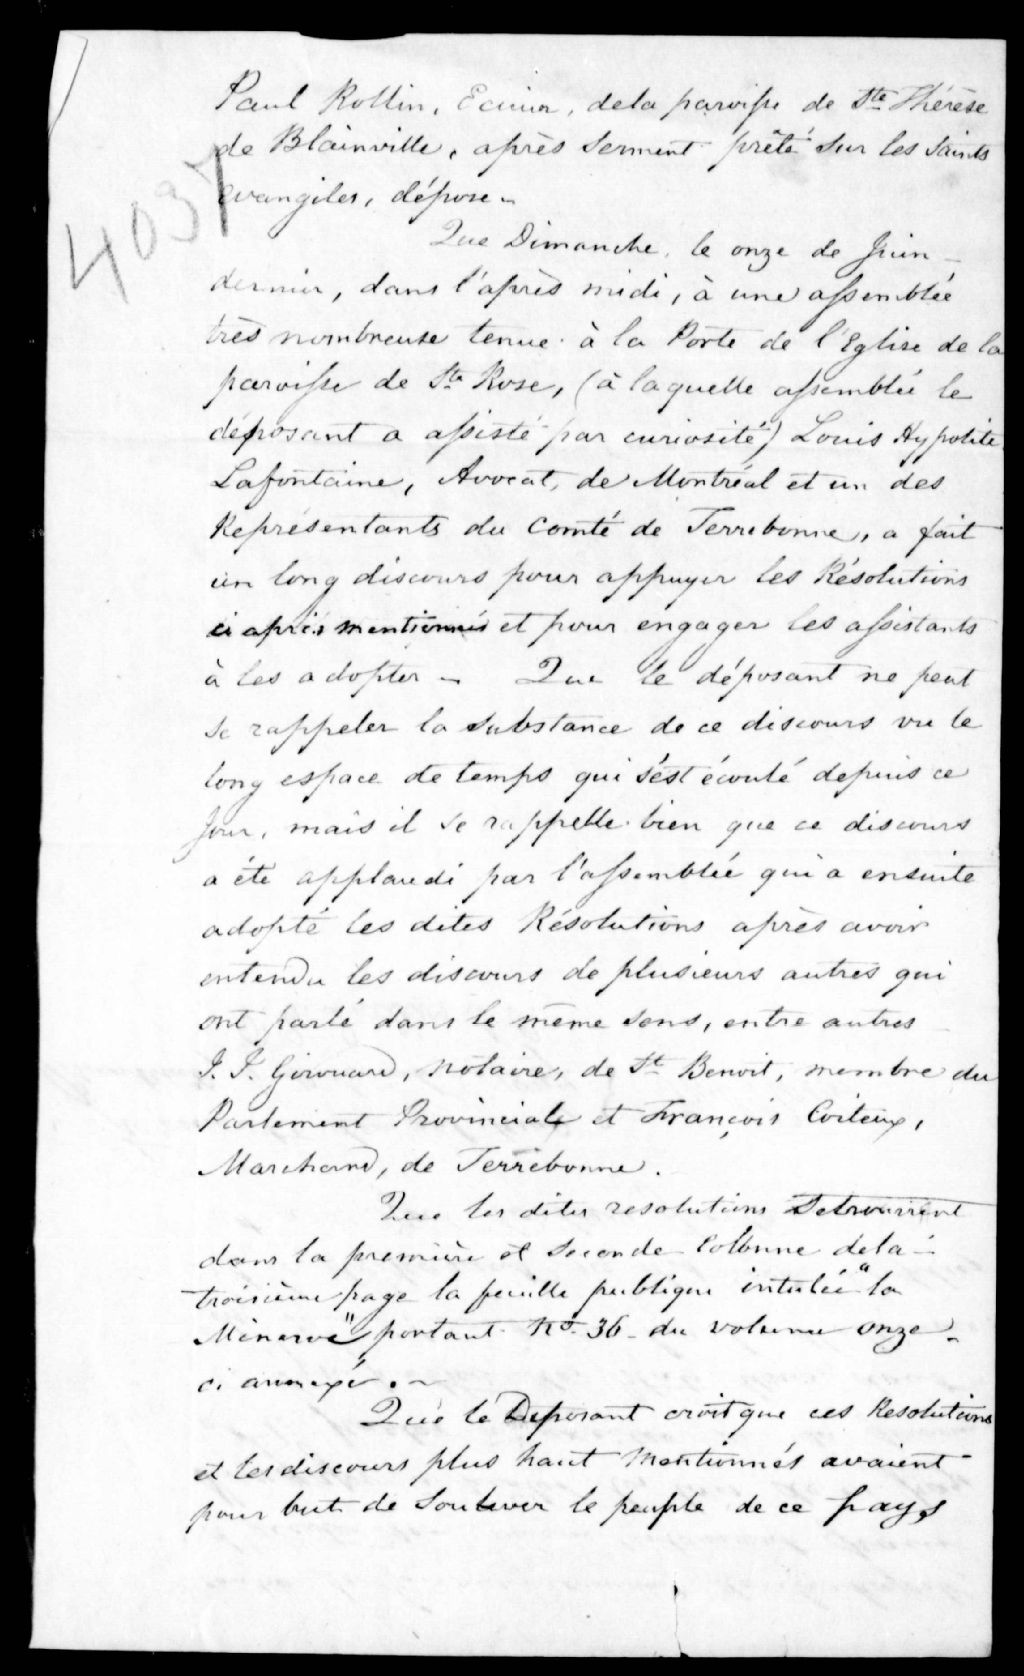 Paul Rollin, Ecuier, dela paroisse de Ste Thérèse
de Blainville, après serment prêté sur les Saints
evangiles, dépose -
4037
Que Dimanche, le onze de Juin -
dernier, dans l'après midi, à une assemblée
très nombreuse tenue à la Porte de l'Eglise de la
paroisse de Ste Rose, (à laquelle assemblée le
déposant a assisté par curiosité) Louis Hypolite
Lafontaine, Avocat, de Montréal et un des
Représentants du Comté de Terrebonne, a fait
un long discours pour appuyer les Résolutions
ci après mentionnés et pour engager les assistants
à les adopter - Que le déposant ne peut
se rappeler la substance de ce discours vu le
long espace de temps qui s'est écoulé depuis ce
jour, mais il se rappelle bien que ce discours
a été applaudi par l'assemblée qui a ensuite
adopté les dites Résolutions après avoir
entendu les discours de plusieurs autres qui
ont parlé dans le même sens, entre autres
J. J. Girouard, notaire, de St Benoit, membre du
Parlement Provincial et François Coiteux,
Marchand, de Terrebonne.
Que les dites resolutions Setrouvent
dans la première et seconde Collonne dela -
troisième page la feuille publique intulée "la
Minerve" portant No. 36 - du volume onze -
ci annexée . -
Que le Deposant croit que ces Resolutions
et les discours plus haut mentionnés avaient
pour but de Soulever le peuple de ce pays